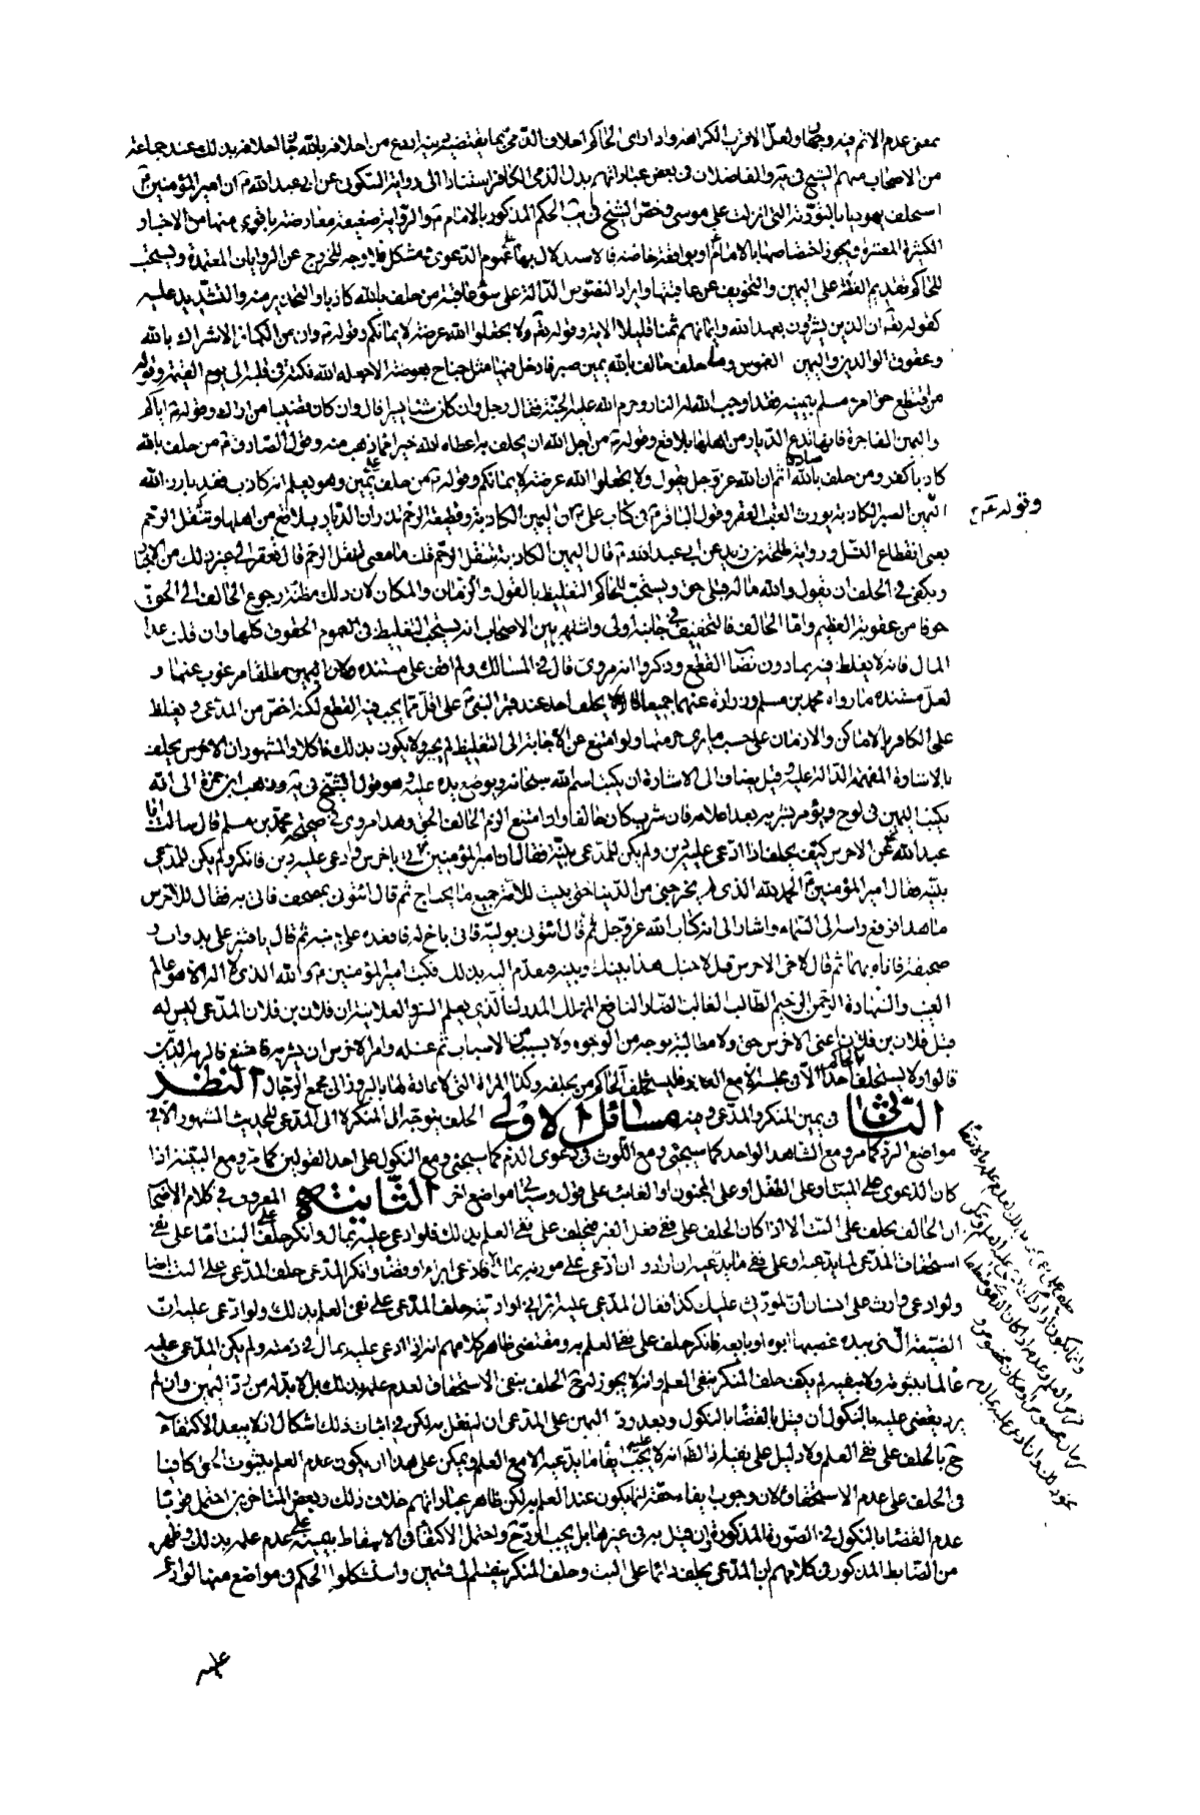 بمعنى عدم الاثم فيه وجهان ولعل الاقرب الكراهة واذا راى الحاكم احلاف الذمي بما يقتضيه دينه اردع من احلافه بالله جاز احلافه بذلك عند جماعة
من الاصحاب منهم الشيخ في ية والفاضلان وفي بعض عباراتهم بدل الذمي الكافر استنادا الى رواية السكوني عن ابي عبد الله ع ان امير المؤمنين ع
استحلف يهوديا بالتورية التي انزلت على موسى وخص الشيخ في يب الحكم المذكور بالامام ع والرواية ضعيفة معارضة باقوى منها من الاخبار
الكثيرة المعتبرة ويجوز اختصاصها بالامام او بواقعة خاصة فالاستدلال بها على عموم الدعوى مشكل فلا وجه للخروج عن الروايات المعتمدة ويستحب
للحاكم تقديم العظة على اليمين والتخويف عن عاقبتها وايراد النصوص الدالة على سوء عاقبة من حلف بالله كاذبا والتحذير منه والتشديد عليه
كقوله تع ان الذين يشترون بعهد الله وايمانهم ثمنا قليلا الاية وقوله تع ولا تجعلوا الله عرضة لايمانكم وقوله ع وان من الكبائر الاشراك بالله
وعقوق الوالدين واليمين الغموس وما حلف حالف بالله يمين صبر فادخل فيها مثل جناح بعوضة الا جعله الله نكتة في قلبه الى يوم القيمة وقوله
من اقتطع حق امرء مسلم بيمينه فقد اوجب الله له النار وحرم الله عليه الجنة فقال رجل وان كان شيئا يسيرا قال وان كان قضيبا من اراك وقوله ع اياكم
واليمين الفاجرة فانها تدع الديار من اهلها بلاقع وقوله ع من اجل الله ان يحلف به اعطاه الله خيرا مما ذهب منه وقول الصادق ع من حلف بالله
كاذبا كفر ومن حلف بالله صادقا اثم ان الله عز وجل يقول ولا تجعلوا الله عرضة لايمانكم وقوله ع من حلف على يمين وهو يعلم انه كاذب فقد بارز الله
وقوله ع
اليمين الصبر الكاذبة يورث العقب الفقر وقول الباقر ع في كتاب علي ع ان اليمين الكاذبة وقطيعة الرحم تذران الديار بلاقع من اهلها وتنغل الرحم
يعني انقطاع النسل ورواية طلحة بن زيد عن ابي عبد الله ع قال اليمين الكاذبة تنغل الرحم قلت ما معنى تنغل الرحم قال تعقر الى غير ذلك من الاخبار
ويكفي في الحلف ان يقول والله ما له قبلي حق ويستحب للحاكم التغليظ بالقول والزمان والمكان لان ذلك مظنة رجوع الحالف الى الحق
خوفا من عقوبة العظيم واما الحالف فالتخفيف في جانبه اولى واشتهر بين الاصحاب انه يستحب التغليظ في عموم الحقوق كلها وان قلت عدا
المال فانه لا يغلظ فيه بما دون نصاب القطع وذكروا انه مروي قال في المسالك ولم اقف على مستنده ولان اليمين مطلقا مرغوب عنها و
لعل مستنده ما رواه محمد بن مسلم وزرارة عنهما جميعا قالا لا يحلف احد عند قبر النبي ص على اقل مما يجب فيه القطع لكنه اخص من المدعى ويغلظ
على الكافر بالاماكن والازمان على حسب ما يرى حرمتها ولو امتنع عن الاجابة الى التغليظ لم يجبر ولا يكون بذلك ناكلا والمشهور ان الاخرس يحلف
بالاشارة المفهمة الدالة عليه وقيل يضاف الى الاشارة ان يكتب اسم الله سبحانه ويوضع يده عليه وهو قول الشيخ في ية وذهب ابن حمزة الى انه
يكتب اليمين في لوح ويؤمر بشربه بعد اعلامه فان شرب كان حالفا واذا امتنع الزم الحالف الحق وهذا مروي في صحيحة محمد بن مسلم قال سالت ابا
عبد الله ع عن الاخرس كيف يحلف اذا ادعي عليه دين ولم يكن للمدعي بينة فقال ان امير المؤمنين ع اتي باخرس وادعي عليه دين فانكر ولم يكن للمدعي
بينة فقال امير المؤمنين ع الحمد لله الذي لم يخرجني من الدنيا حتى بينت للامة جميع ما يحتاج ثم قال ائتوني بمصحف فاتي به فقال للاخرس
ما هذا فرفع راسه الى السماء واشار الى انه كتاب الله عز وجل ثم قال ائتوني بوليه فاتي باخ له فاقعده على جنبه ثم قال يا قنبر علي بدواة و
صحيفة فاتاه بهما ثم قال لاخي الاخرس قل لاخيك هذا بينك وبينه فتقدم اليه بذلك فكتب امير المؤمنين ع والله الذي لا اله الا هو عالم
الغيب والشهادة الرحمن الرحيم الطالب الغالب الضار النافع المهلك المدرك الذي يعلم السر والعلانية ان فلان بن فلان المدعي ليس له
قبل فلان بن فلان اعني الاخرس حق ولا مطالبة بوجه من الوجوه ولا بسبب من الاسباب ثم غسله وامر الاخرس ان يشربه فامتنع فالزمه الدين
قالوا ولا يستحلف الحاكم احدا الا في مجلسه الا مع العذر فليستخلف الحاكم من يحلفه وكذا المراة التي لا عادة لها بالبروز الى مجمع الرجال النظر
الثاني في يمين المنكر والمدعي وفيه مسائل الاولى الحلف يتوجه الى المنكر لا الى المدعي للحديث المشهور الا في
مواضع الرد كما مر ومع الشاهد الواحد كما سيجئ ومع اللوث في دعوى الدم كما سيجئ ومع النكول على احد القولين كما مر ومع البينة اذا
كان الدعوى على الميت او على الطفل او على المجنون او الغائب على قول وسياتي مواضع اخر الثانية المعروف في كلام الاصحاب
ان الحالف يحلف على البت الا اذا كان الحلف على نفي فعل الغير فيحلف على نفي العلم بذلك فلو ادعي عليه بمال وانكر حلف على البت اما على نفي
استحقاق المدعي لما يدعيه او على نفي ما يدعيه ان اراد وان ادعي على مورثه بمال فادعى ابراء او قضاء وانكر المدعي حلف المدعي على البت ايضا
ولو ادعى وارث على انسان ان لمورثي عليك كذا فقال المدعى عليه ابراني او اديته حلف المدعي على نفي العلم بذلك ولو ادعي عليه ان
الضيعة التي بيده غصبها ابوه او بايعه فانكر حلف على نفي العلم به ومقتضى ظاهر كلامهم انه اذا ادعى عليه بمال في ذمته ولم يكن المدعى عليه
عالما بثبوته ولا بنفيه لم يكف حلف المنكر بنفي العلم وانه لا يجوز له ح الحلف بنفي الاستحقاق لعدم علمه بذلك بل لا بد له من رد اليمين وان لم
يرد يقضى عليه بالنكول ان قيل بالقضاء بالنكول وبعد رد اليمين على المدعي ان لم نقل به لكن في اثبات ذلك اشكال اذ لا يبعد الاكتفاء
ح بالحلف على نفي العلم ولا دليل على نفيه اذ الظ انه لا يجب عليه ايفاء ما يدعيه الا مع العلم ويمكن على هذا ان يكون عدم العلم بثبوت الحق كافيا
في الحلف على عدم الاستحقاق لان وجوب ايفاء حقه انما يكون عند العلم به لكن ظاهر عباراتهم خلاف ذلك وبعض المتاخرين احتمل قويا
عدم القضاء بالنكول في الصورة المذكورة وان قيل به في غيرها بل يجب الرد ح واحتمل الاكتفاء في الاسقاط بيمينه على عدم علمه بذلك وظهر
من الضابط المذكور في كلامهم ان المدعي يحلف دائما على البت وحلف المنكر ينقسم الى قسمين واستشكلوا الحكم في مواضع منها لو ادعي
عليه